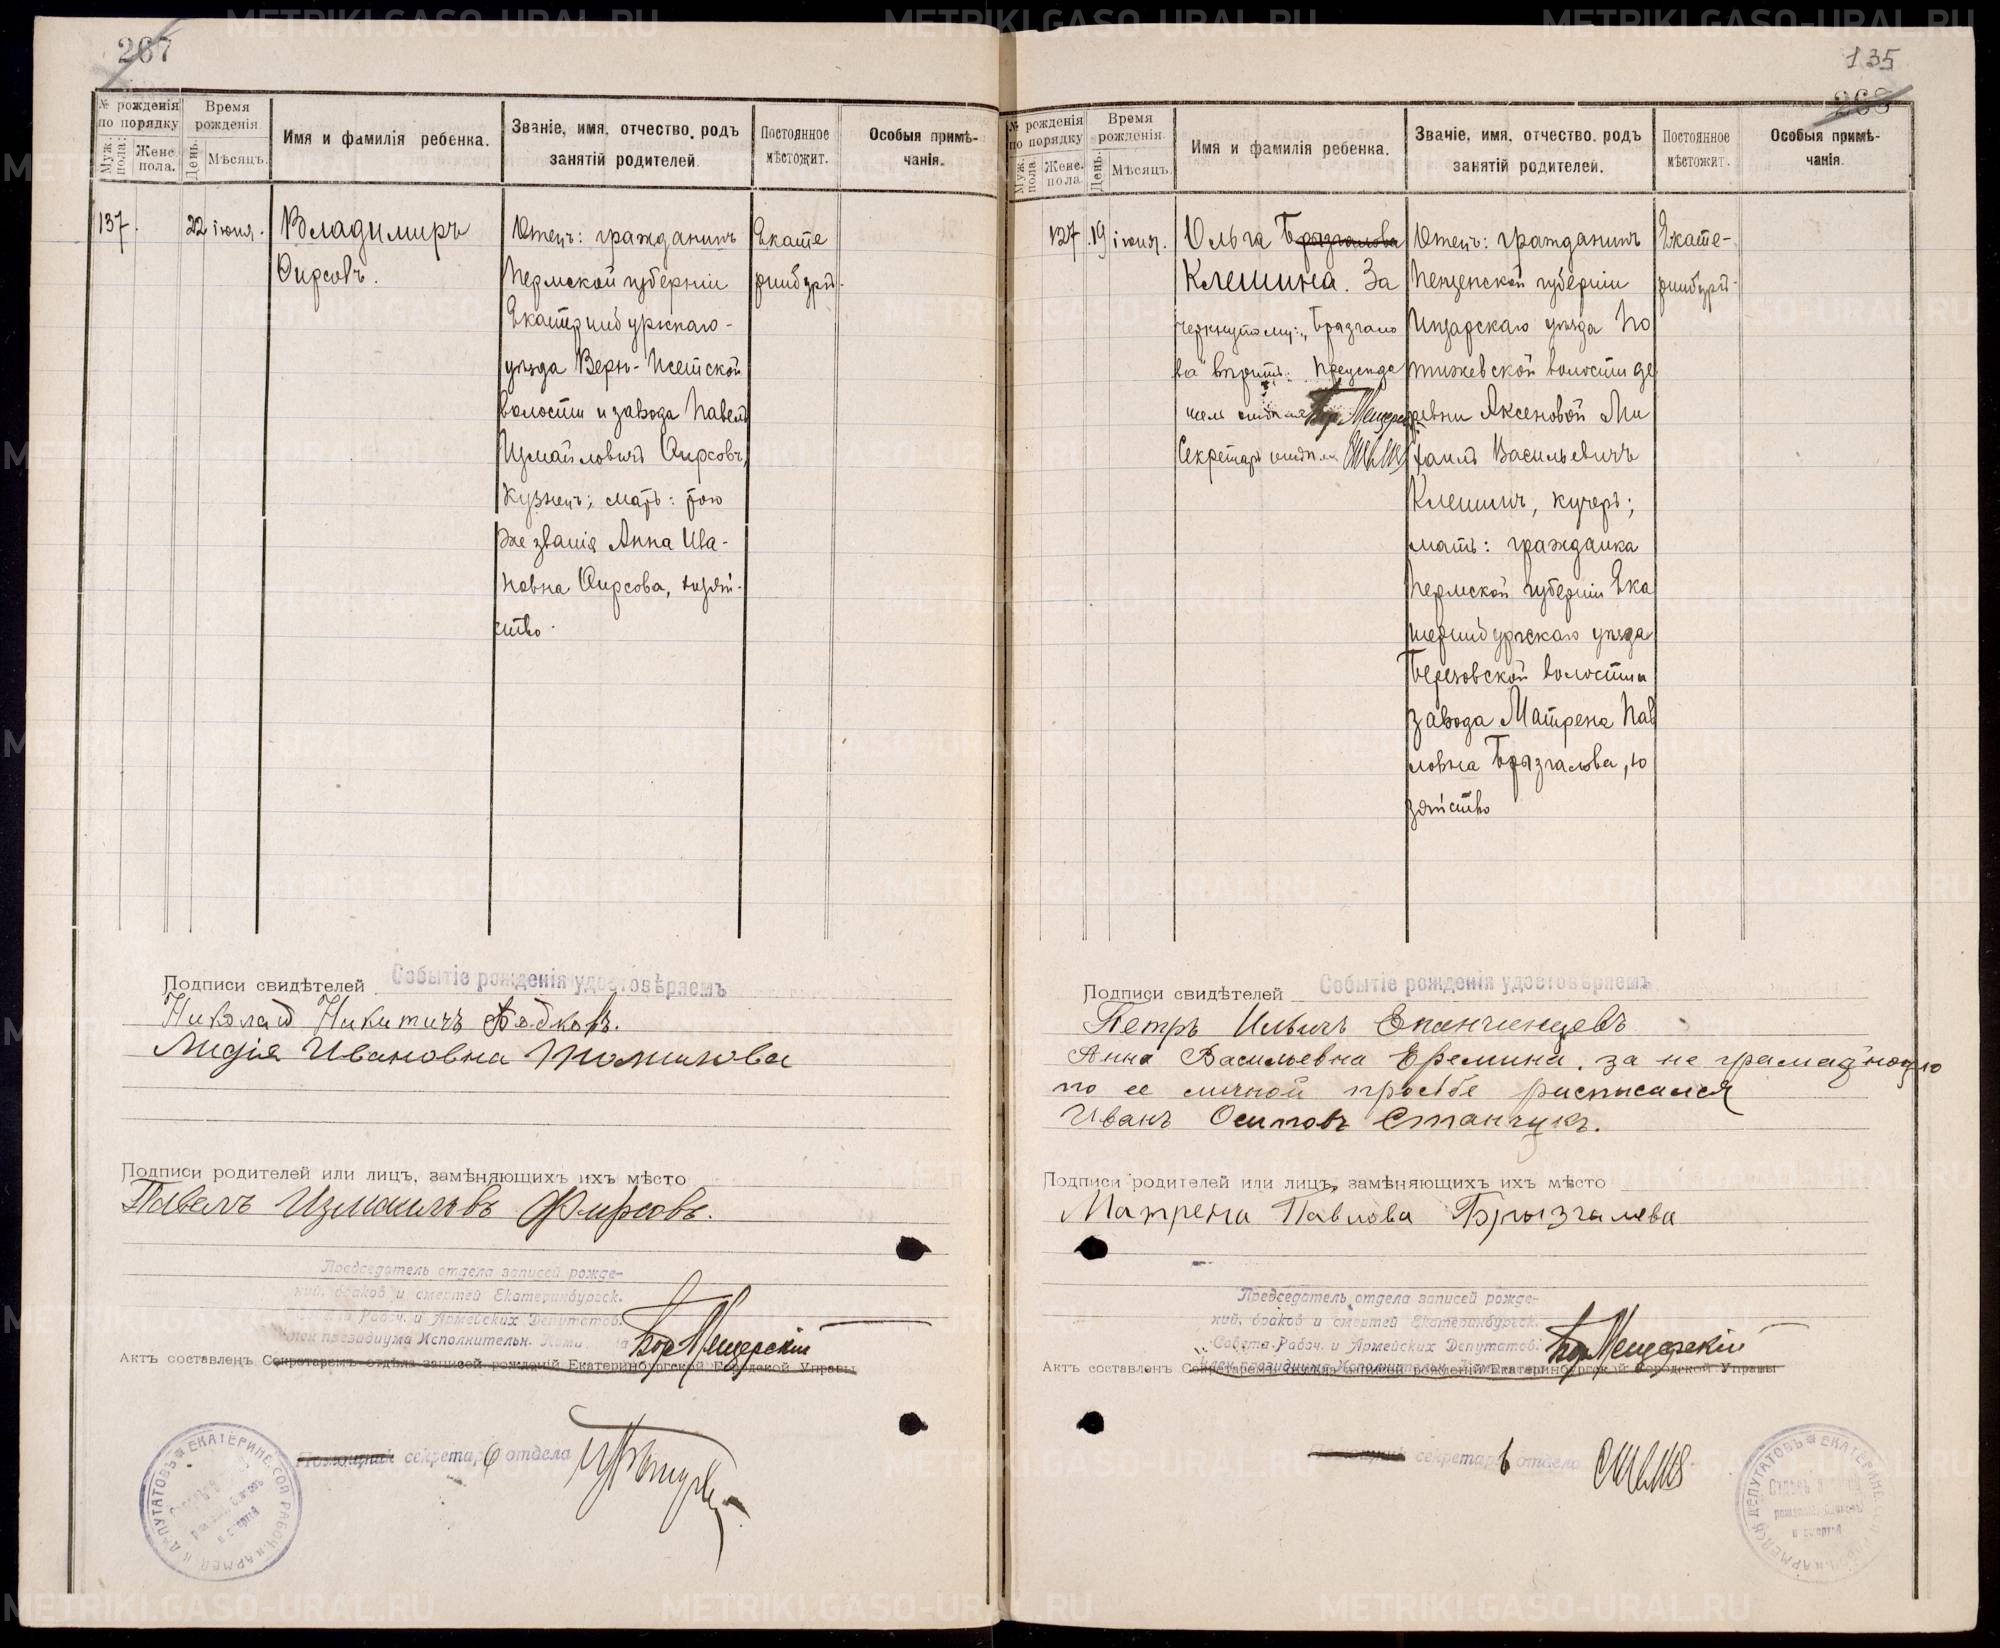 267
№ рожденія по порядку
Муж. пола.
Женс. пола.
Время рожденія.
День.
Мѣсяцъ.
Имя и фамилія ребенка.
Званіе, имя, отчество, родъ занятій родителей.
Постоянное мѣстожит.
Особыя примѣчанія.
137.
22
іюня.
Владимиръ
Фирсовъ.
Отецъ: гражданинъ
Пермской губерніи
Екатеринбургскаго
уѣзда Верх-Исетской
волости и завода Павелъ
Измайловичъ Фирсовъ,
кузнецъ; мать: того
же званія Анна Ива-
новна Фирсова, хозяй-
ство.
Екате
ринбургъ.
Подписи свидѣтелей
Событіе рожденія удостовѣряемъ
Николай Никитичъ
Лидія Ивановна
Подписи родителей или лицъ, замѣняющихъ ихъ мѣсто
Павелъ Измаиловъ Фирсовъ.
Предсѣдатель отдела записей рожде-
ній, браков и смертей Екатеринбургск.
Совета Рабоч. и Армейских Депутатов.
член президиума Исполнительн. Коми
Бор Мещерскій
Актъ составленъ Секретаремъ отдѣла записей рожденій Екатеринбургской Городской Управы
Помощник секретарь отдела
135
268
№ рожденія по порядку
Муж. пола
Женс. пола
Время рожденія.
День.
Мѣсяцъ.
Имя и фамилія ребенка.
Званіе, имя, отчество, родъ занятій родителей.
Постоянное мѣстожит.
Особыя примѣчанія.
127.
19
іюня.
Ольга Брызгалова
Клешина. За
черкнутому: „Брызгало
ва" вѣрить. Председа
Бор Мещерскій
Секретарь отдѣла
Отецъ: гражданинъ
Пензенской губерніи
Инсарскаго уѣзда По
тижевской волости де
ревни Аксеновой Ми
хаилъ Васильевичъ
Клешинъ, кучеръ;
мать: гражданка
Пермской губерніи Ека
теринбургскаго уѣзда
Березовской волости и
завода Матрена Пав
ловна Брызгалова, хо
зяйство
Екате-
ринбургъ.
Подписи свидѣтелей
Событіе рожденія удостовѣряемъ
Петръ Ильичъ Епанчинцевъ
Анна Васильевна Еремина. за не грамадною
по ее личной просьбе расписался
Иванъ Осиповъ Станчукъ.
Подписи родителей или лицъ, замѣняющихъ ихъ мѣсто
Матрена Павлова Брызгалева
Предсѣдатель отдела записей рожде-
ній, браков и смертей Екатеринбургск.
Совета Рабоч. и Армейских Депутатов.
Член президиума Исполнительн.
Бор Мещерскій
Актъ составленъ Секретаремъ отдѣла записей рожденій Екатеринбургской Городской Управы
Помощник секретарь отдела
METRIKI.GASO-URAL.RU